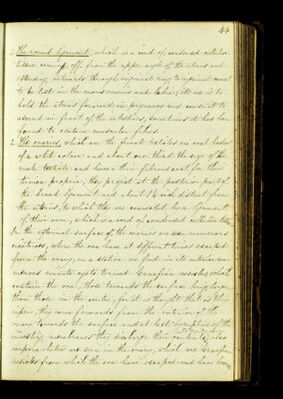 44
1. The round ligament, which is a cord of condensed cellular
tissue coming off from the upper angle of the uterus and
extending outwards through inguinal ring to inguinal canal
to be lost in the mons veneris and labia; its use is to
hold the uterus forward in pregnancy and cause it to
ascend in front of the intestines, sometimes it has been
found to contain muscular fibres.
2. The ovaries, which are the female testicles are oval bodies
of a whitish colour and about one third the size of the
male testicle and have a thin fibrous coat for their
tunica propria; they project at the posterior part of
the broad ligament and about 1½ inch distant from
the uterus, to which they are connected by a ligament
of their own, which is a cord of condensed cellular tissue
On the external surface of the ovaries are seen numerous
cicatrices, where the ova have at different times escaped
from the ovary; on a section we find in its interior nu-
merous minute cysts termed Graafian vesicles, which
contain the ova, those towards the surface being larger
than those in the centre, for it is thought that as they
ripen, they come forwards from the interior of the
ovary towards the surface and at last
investing membranes they discharge their contents;
corpora lutea are seen in the ovary, which are Graafian
vesicles from which the ova have escaped and have been